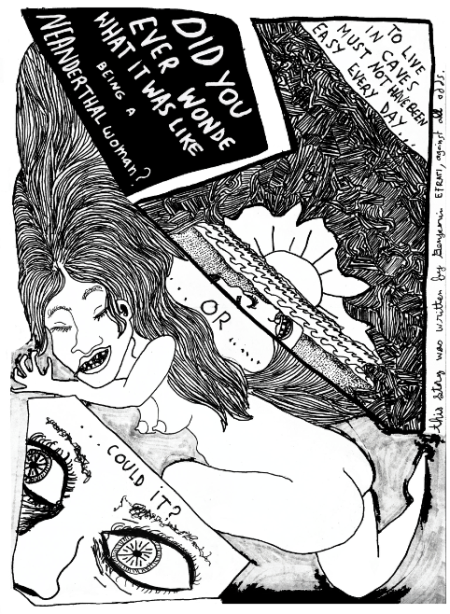 DID YOU
EVER WONDE
WHAT IT WAS LIKE
BEING A
NEANDERTHAL woman?
TO LIVE
IN CAVES
MUST NOT HAVE BEEN
EASY EVERY DAY...
... OR .....
... COULD IT?
this story was written by Benjamin EFRATI, against all odds.